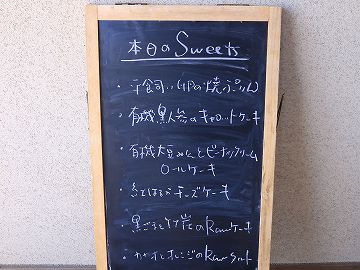 本日のSweets
・平飼い卵の焼プリン
・有機黒人参のキャロットケーキ
・有機大豆粉とピーナッツクリーム
ロールケーキ
・紅ほっぺチーズケーキ
・黒ごまと竹炭のRawケーキ
・カカオとオレンジのRawタルト